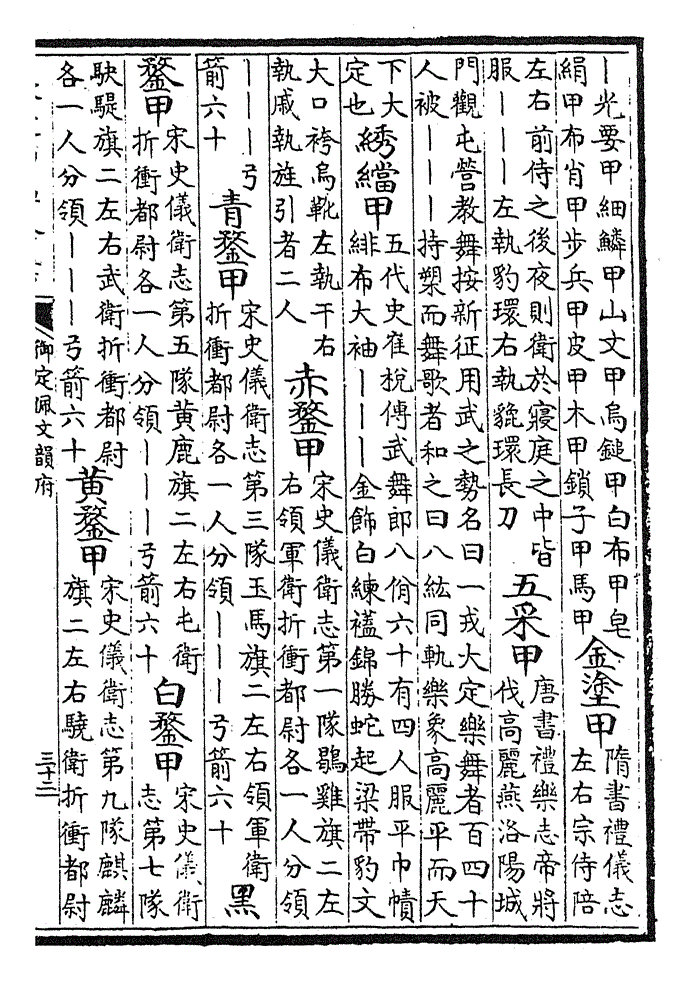 ｜光要甲細鱗甲山文甲烏鎚甲白布甲皂
絹甲布肖甲步兵甲皮甲木甲鎖子甲馬甲
金塗甲
隋書禮儀志
左右宗侍陪
左右前侍之後夜則衛於寢庭之中皆
服｜｜｜左執豹環右執貔環長刀
五采甲
唐書禮樂志帝將
伐高麗燕洛陽城
門觀屯營教舞按新征用武之勢名曰一戎大定樂舞者百四十
人被｜｜｜持槊而舞歌者和之曰八紘同軌樂象高麗平而天
下大
定也
綉䌟甲
五代史崔梲傳武舞郎八佾六十有四人服平巾幘
緋布大袖｜｜｜金飾白練錦勝蛇起梁帶豹文
大口袴烏靴左執干右
執戚執旌引者二人
赤鍪甲
宋史儀衛志第一隊鶡雞旗二左
右領軍衛折衝都尉各一人分領
｜｜｜弓
箭六十
青鍪甲
宋史儀衛志第三隊玉馬旗二左右領軍衛
折衝都尉各一人分領｜｜｜弓箭六十
黑
鍪甲
宋史儀衛志第五隊黄鹿旗二左右屯衛
折衝都尉各一人分領｜｜｜弓箭六十
白鍪甲
宋史儀衛
志第七隊
駃騠旗二左右武衛折衝都尉
各一人分領｜｜｜弓箭六十
黄鍪甲
宋史儀衛志第九隊麒麟
旗二左右驍衛折衝都尉
御定佩文韻府
三十二